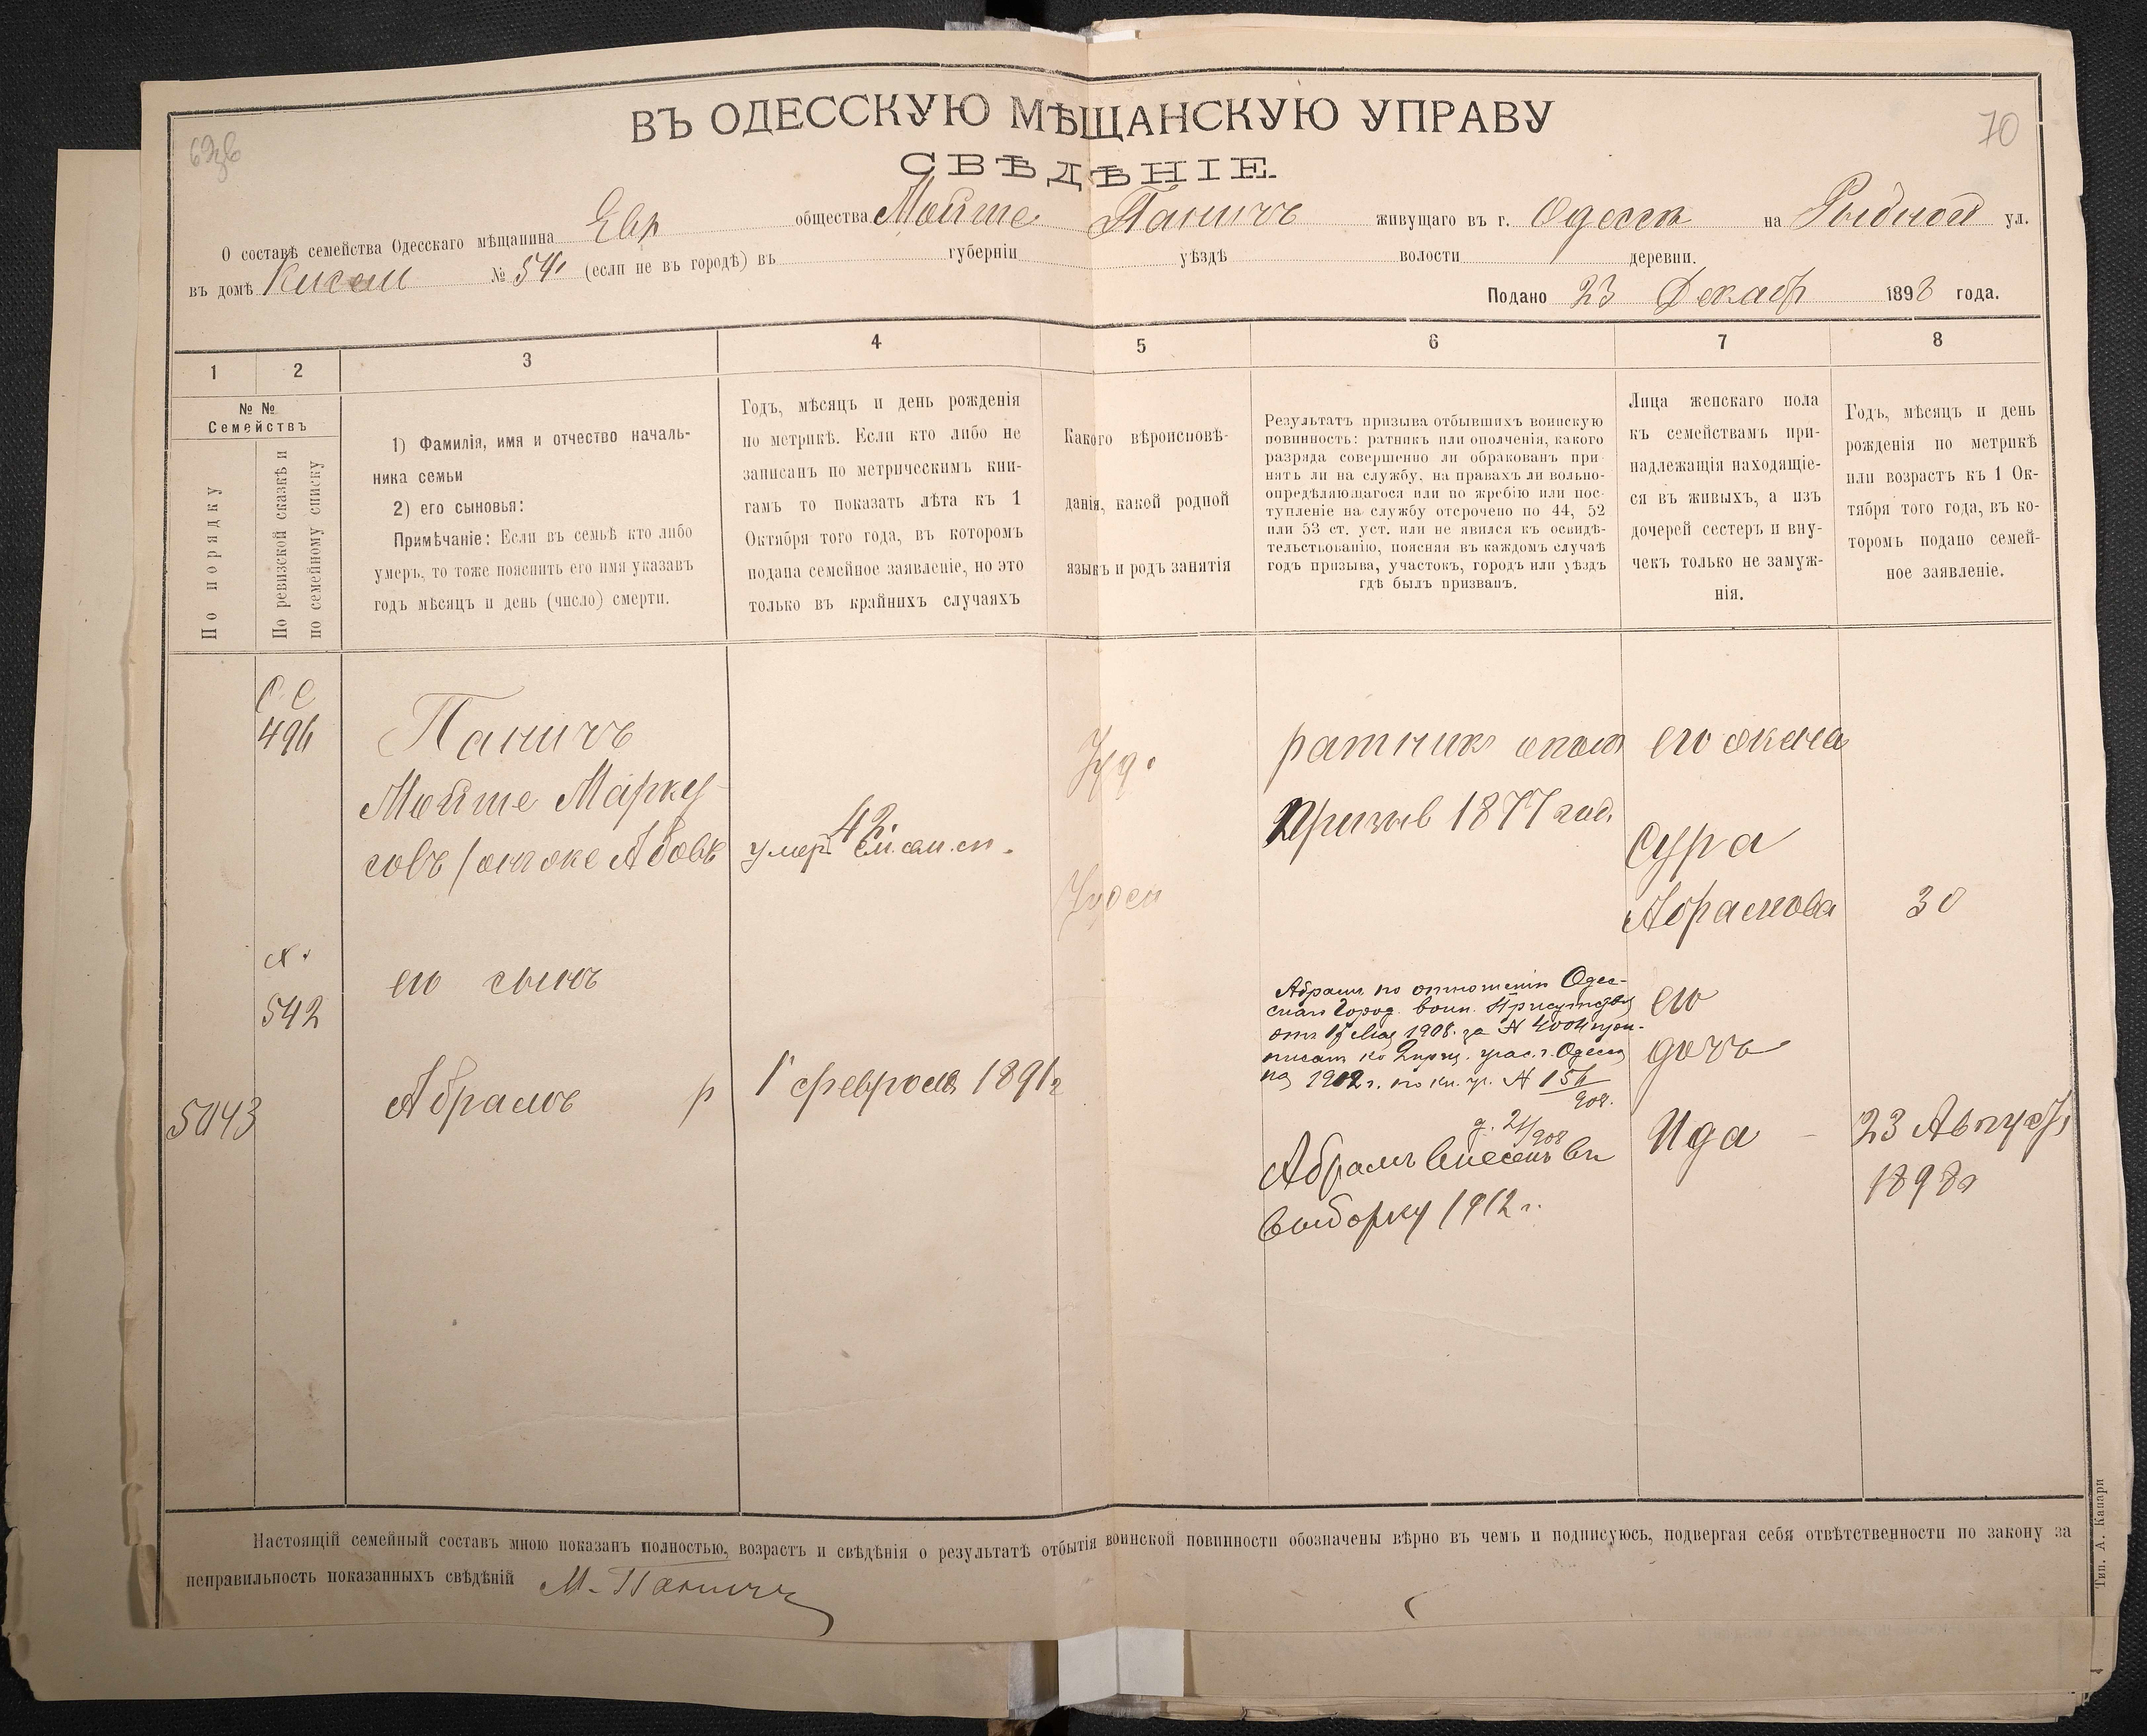 ВЪ ОДЕССКУЮ МѢЩАНСКУЮ УПРАВУ
СВѢДѢНІЕ.
70
О составѣ семейства Одесскаго мѣщанина Евр общества Мойше Паничъ живущаго въ г. Одесса на Рыбной ул.
въ домѣ № 54 (если не въ городѣ) въ губерніи уѣздѣ волости деревни.
Подано 23 Декабр 1898 года.
1 2 3 4 5 6 7 8
№ №
Семействъ
По порядку
По ревизской сказкѣ и
по семейному списку
1) Фамилія, имя и отчество началь-
ника семьи
2) его сыновья:
Примѣчаніе: Если въ семьѣ кто либо
умеръ, то тоже пояснить его имя указавъ
годъ мѣсяцъ и день (число) смерти.
Годъ, мѣсяцъ и день рожденія
по метрикѣ. Если кто либо не
записанъ по метрическимъ кни-
гамъ то показать лѣта къ 1
Октября того года, въ которомъ
подана семейное заявленіе, но это
только въ крайнихъ случаяхъ
Какого вѣроисповѣ-
данія, какой родной
языкъ и родъ занятія
Результатъ призыва отбывшихъ воинскую
повинность: ратникъ или ополченія, какого
разряда совершенно ли обракованъ при
нятъ ли на службу, на правахъ ли вольно-
опредѣляющагося или по жребію или пос-
тупленіе на службу отсрочено по 44, 52
или 53 ст. уст. или не явился къ освидѣ-
тельствованію, поясняя въ каждомъ случаѣ
годъ призыва, участокъ, городъ или уѣздъ
гдѣ былъ призванъ.
Лица женскаго пола
къ семействамъ при-
надлежащія находящіе-
ся въ живыхъ, а изъ
дочерей сестеръ и вну-
чекъ только не замуж-
нія.
Годъ, мѣсяцъ и день
рожденія по метрикѣ
или возрастъ къ 1 Ок-
тября того года, въ ко-
торомъ подано семей-
ное заявленіе.
С С
496
Паничъ
Мойше Марку-
совъ
42.
умер
Іуд.
Іудей
ратник опол
призыв 1877 год.
его жена
Сура
Абрамова
30
542
его сынъ
5043
Абрамъ р
1 февраля 1891 г
Абрам по отношенію Одес-
скаго Город. воин. Присутствія
от 17 Мая 1908. за №
писан ко 2 приз. учас. г. Одессы
на 1912 г. по кн. уч. № 156/908.
д. 21/908
Абрамъ Внесенъ въ
выборку 1912 г.
его
дочь
Ида
23 Август
1898 г
Настоящій семейный составъ мною показанъ полностью, возрастъ и свѣдѣнія о результатѣ отбытія воинской повинности обозначены вѣрно въ чемъ и подписуюсь, подвергая себя отвѣтственности по закону за
неправильность показанныхъ свѣдѣній М. Паничъ
Тип. А. Капари